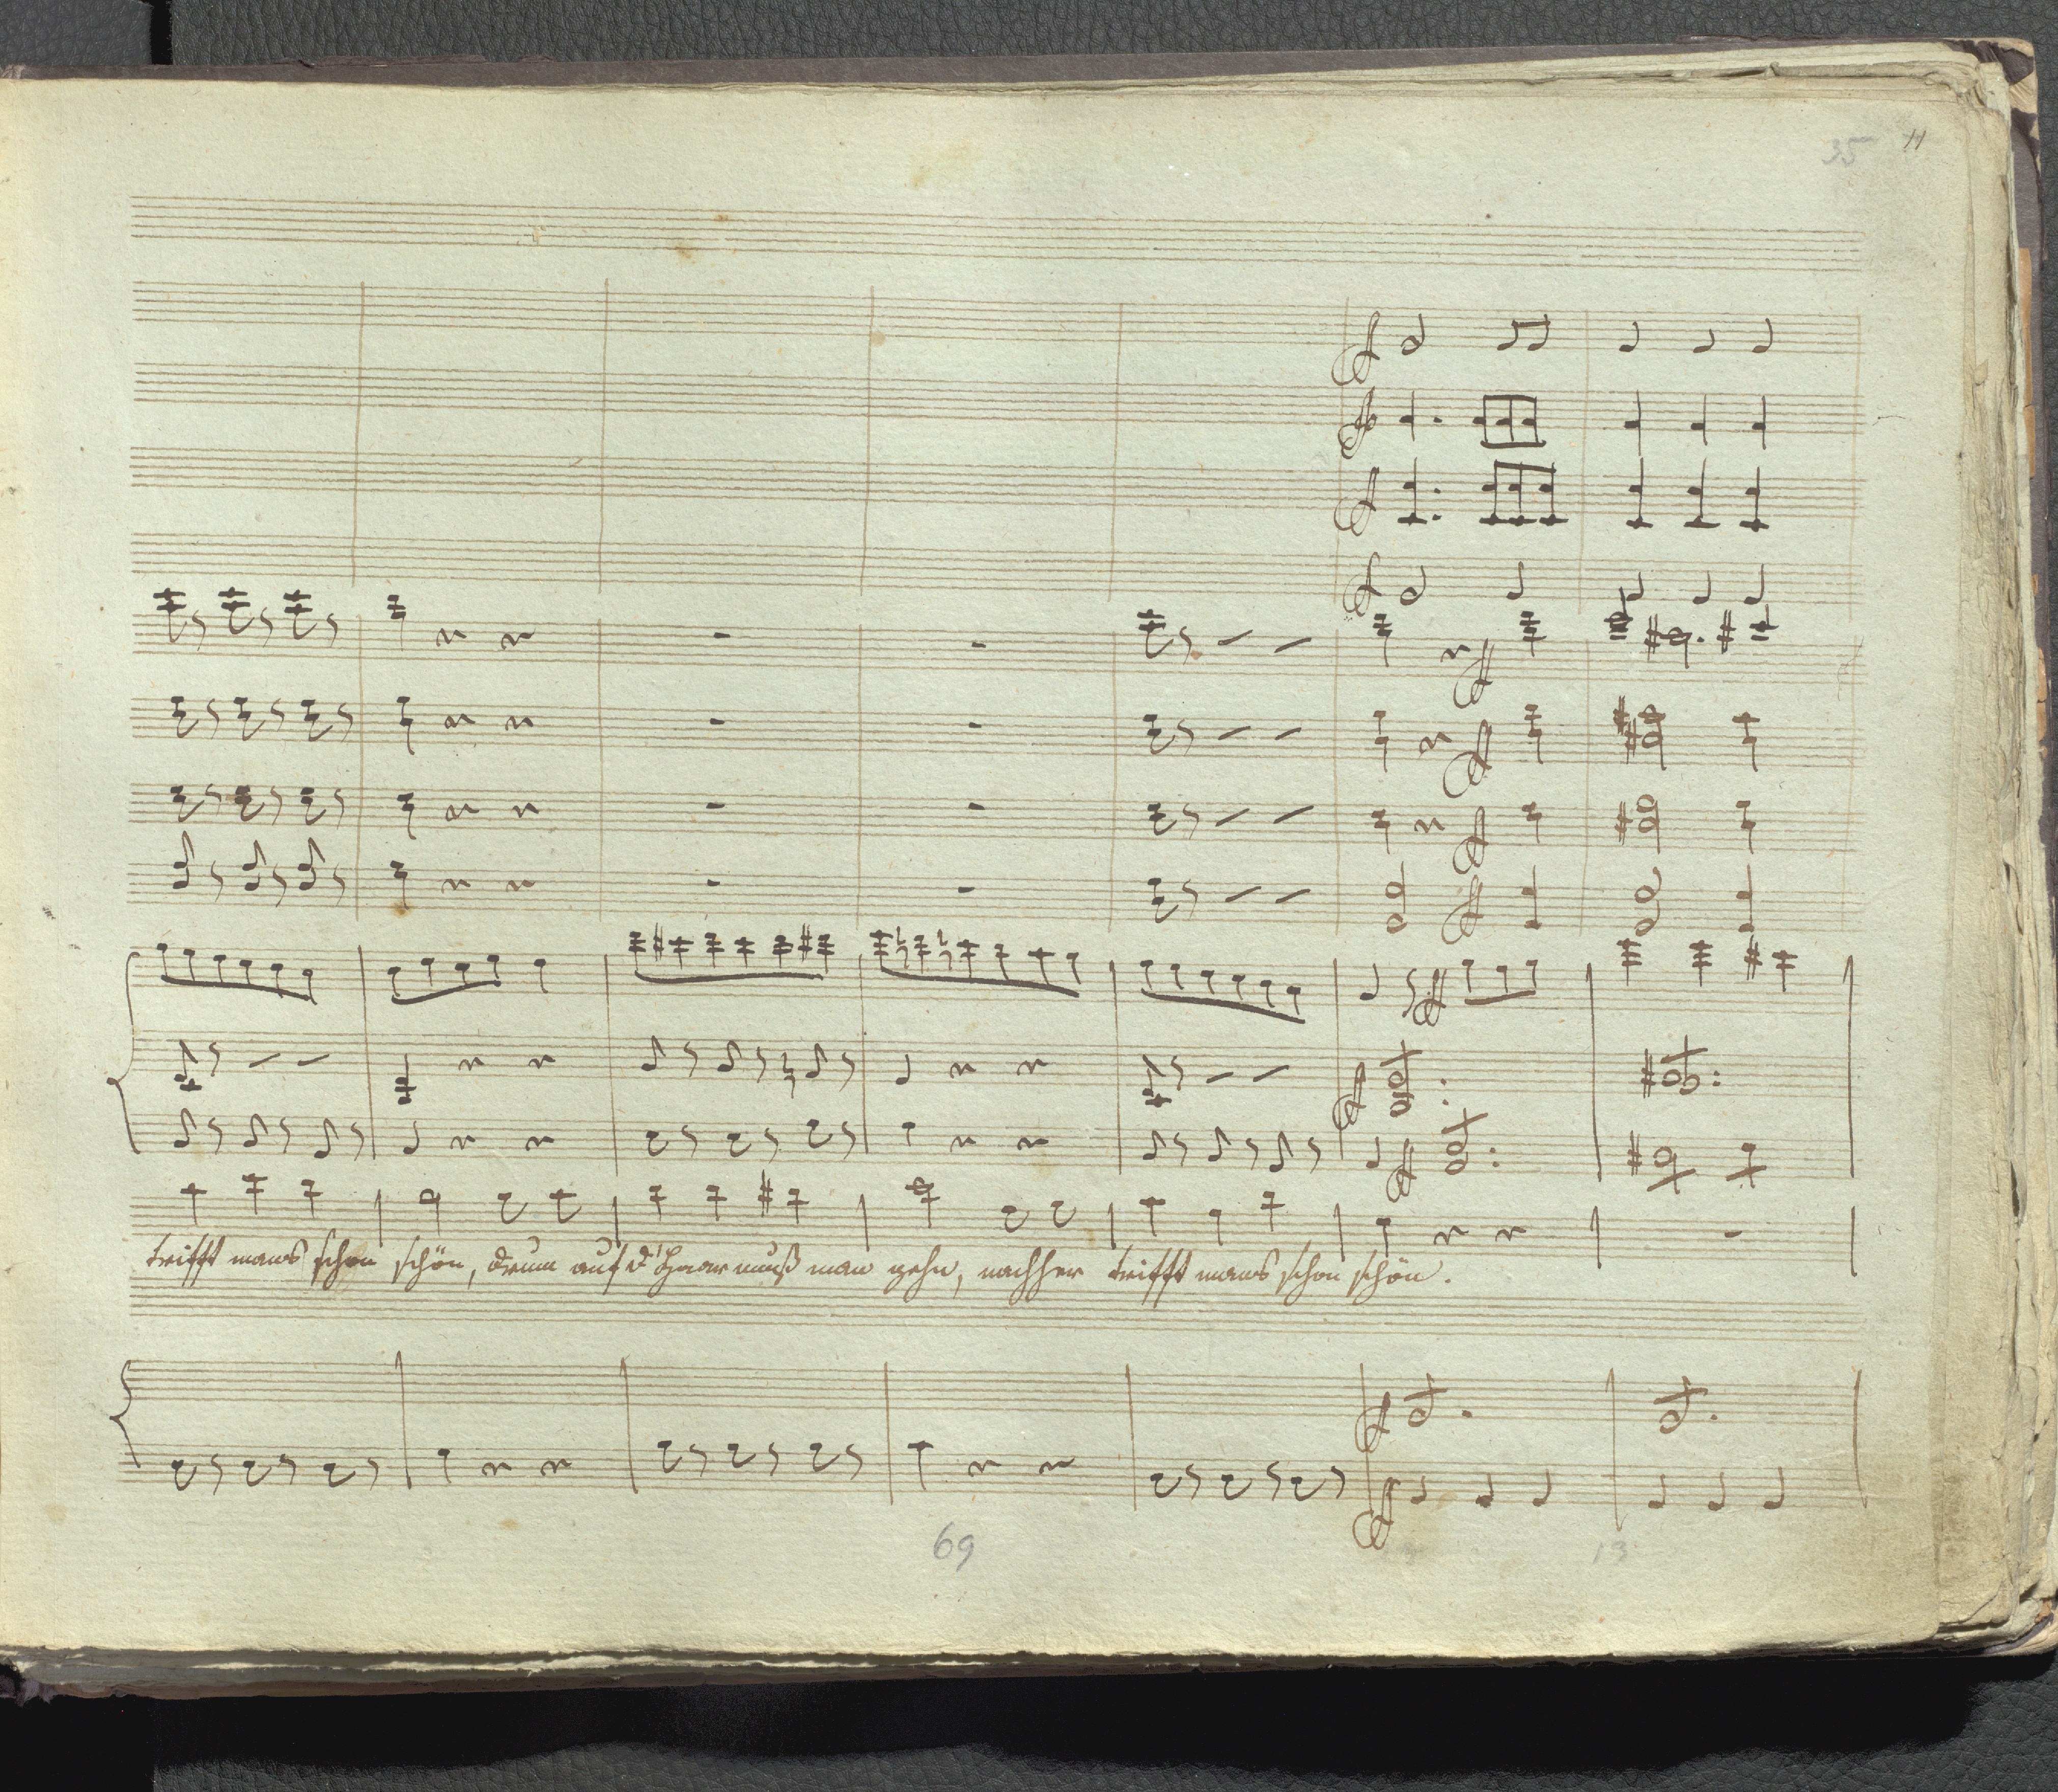 35 11
trifft mans schon schön, drum auf d'Haar muß man gehn, nachher trifft mans schon schön.
69
13